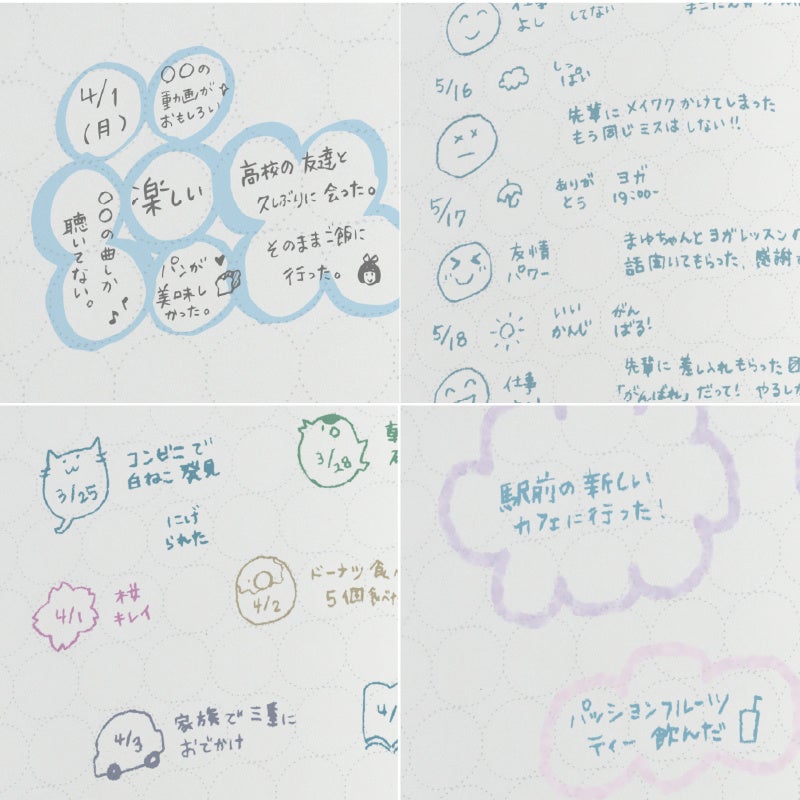 4/1
(月)
○○の
動画が
おもしろい
楽しい
○○の曲しか
聴いてない。
パンが
美味し
かった。
高校の友達と
久しぶりに会った。
そのままご飯に
行った。
よし
してない
5/16
しっ
ぱい
先輩にメイワクかけてしまった
もう同じミスはしない!!
5/17
ありが
とう
ヨガ
19:00~
友情
パワー
まゆちゃんとヨガレッスン
話聞いてもらった、感謝
5/18
いい
かんじ
がん
ばる!
仕事
先輩に差し入れもらった
「がんばれ」だって! やるしか
3/25
コンビニで
白ねこ発見
にげ
られた
3/28
4/1
桜
キレイ
4/2
ドーナツ食
5個食べ
4/3
家族で三重に
おでかけ
4/
駅前の新しい
カフェに行った!
パッションフルーツ
ティー飲んだ